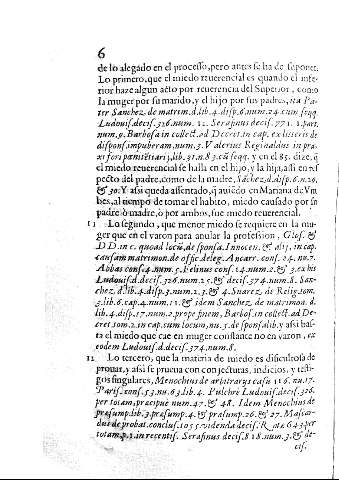 6
de lo alegado en el processo, pero antes se ha de suponer.
Lo primero, que el miedo reuerencial es quando el infe-
rior haze algun acto por reuerencia del Superior, como
la muger por su marido, y el hijo por sus padres, ita Pa-
ter Sanchez. de matrim. d. lib. 4. disp. 6. num. 24. cum seqq.
Ludouis. decis. 326. num. 12. Serafinus decis. 771. 1. part.
num. 9. Barbosa in collect. ad Decret. in cap. ex literis de
dispons. impuberam, num. 3. Valerius Reginaldus in pra-
xi fori pœnitētiarij, lib. 31. n. 83. cū seqq. y en el 85. dize, q̃
el miedo reuerencial se halla en el hijo, y la hija, assi en res
pecto del padre, como de la madre, Sāchez, d. disp. 6. n. 29.
& 30. Y assi queda assentado, q̃ auiēdo en Mariana de Vm
bes, al tiempo de tomar el habito, miedo causado por su
padre ò madre, ò por ambos, fue miedo reuerencial.
Lo segundo, que menor miedo se requiere en la mu-
ger que en el varon para anular la profession, Glos. &
DD. in c. quoad locū, de sponsa. Innocen. & alij, in cap.
causam matrimon. de offic. deleg. Ancarr. cons. 24. nu. 7.
Abbas cons. 4. num. 5. Felinus cons. 14. num. 2. & 3. ex his
Ludouis. d. decis. 326. num. 27. & decis. 374. num. 8. San-
chez. d. lib. 4. disp. 3. num. 2. 3. & 4. Suarez de Relig. tom.
3. lib. 6. cap. 4. num. 11. & idem Sanchez de matrimon. d.
lib. 4. disp. 17. num. 2. prope finem, Barbosa in collect. ad De-
cret. tom. 2. in cap. cum locum, nu. 3. de sponsalib. y assi bas-
ta el miedo que cae en muger constante no en varon, ex
eodem Ludouis. d. decis. 374. num. 8.
12 Lo tercero, que la materia de miedo es dificultosa de
prouar, y assi se prueua con conjecturas, indicios, y testi-
gos singulares, Menochius de arbitrarijs casu 116. nu. 17.
Paris. cons. 53. nu. 63. lib. 4. Pulchrè Ludouis. decis. 326.
per totam, præcipuè num. 47. & 48. Idem Menochius de
præsump. lib. 3. præsump. 4. & præsump. 26. & 27. Mascar-
dus de probat. conclus. 1055. videnda decis. Rotæ 643. per
totam. p. 1. in recentis. Serafinus decis. 818. num. 3. & de-
cis.